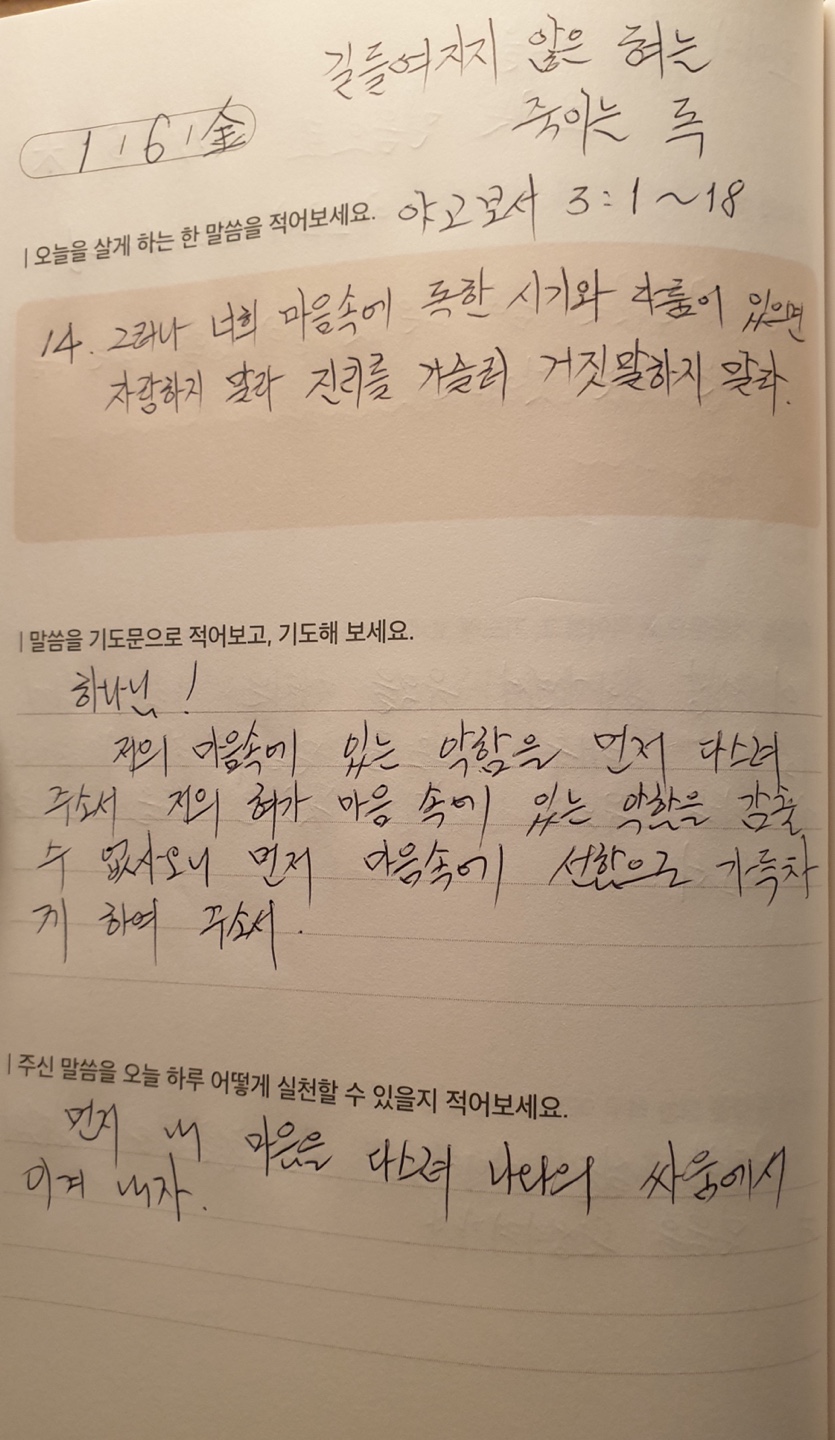 길들여지지 않은 혀는
죽이는 독
1 / 6 / 金
오늘을 살게 하는 한 말씀을 적어보세요. 야고보서 3:1~18
14. 그러나 너희 마음속에 독한 시기와 다툼이 있으면
자랑하지 말라 진리를 거슬러 거짓말하지 말라.
말씀을 기도문으로 적어보고, 기도해 보세요.
하나님!
저의 마음속에 있는 악함을 먼저 다스려
주소서 저의 혀가 마음 속에 있는 악함을 감출
수 없사오니 먼저 마음속에 선함으로 가득차
게 하여 주소서.
주신 말씀을 오늘 하루 어떻게 실천할 수 있을지 적어보세요.
먼저 내 마음을 다스려 나와의 싸움에서
이겨 내자.